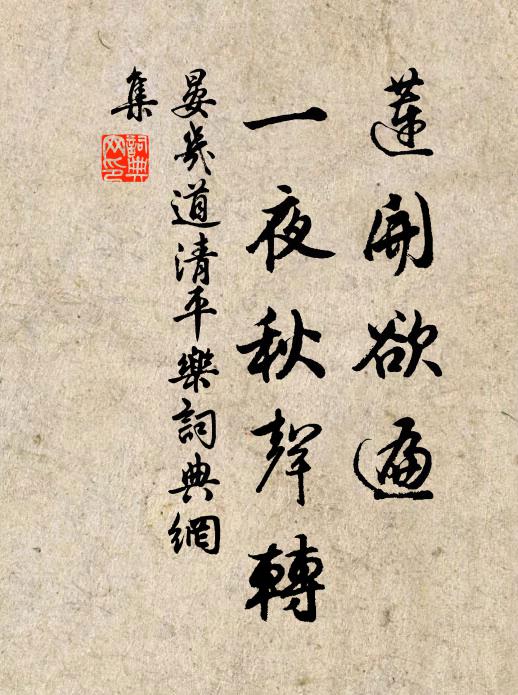 蓮開欲遍
一夜秋聲轉
晏幾道清平樂詞典網
集
詞典網印